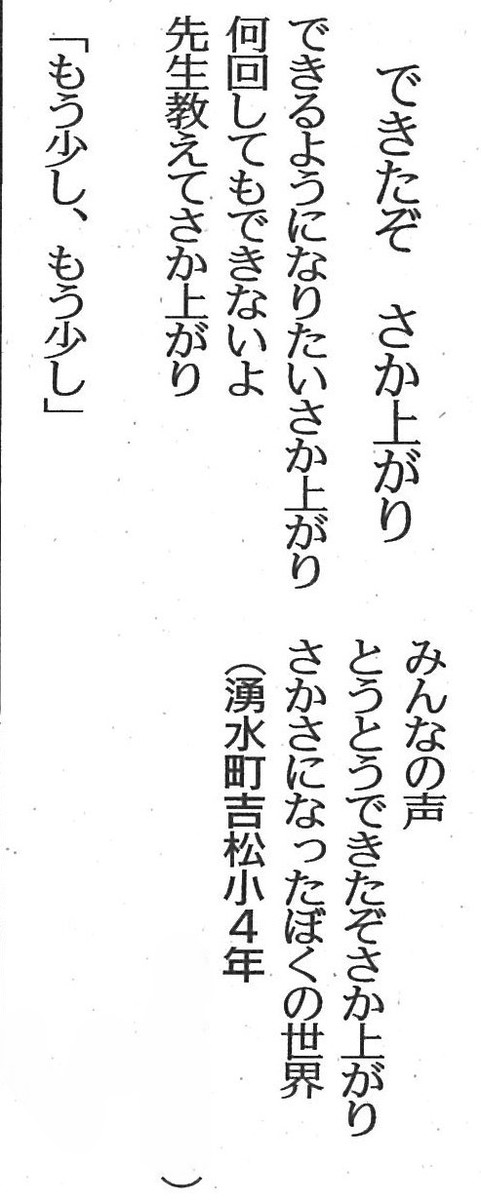 できたぞ　さか上がり
できるようになりたいさか上がり
何回してもできないよ
先生教えてさか上がり
「もう少し、もう少し」
みんなの声
とうとうできたぞさか上がり
さかさになったぼくの世界
（湧水町吉松小４年　　　　　）